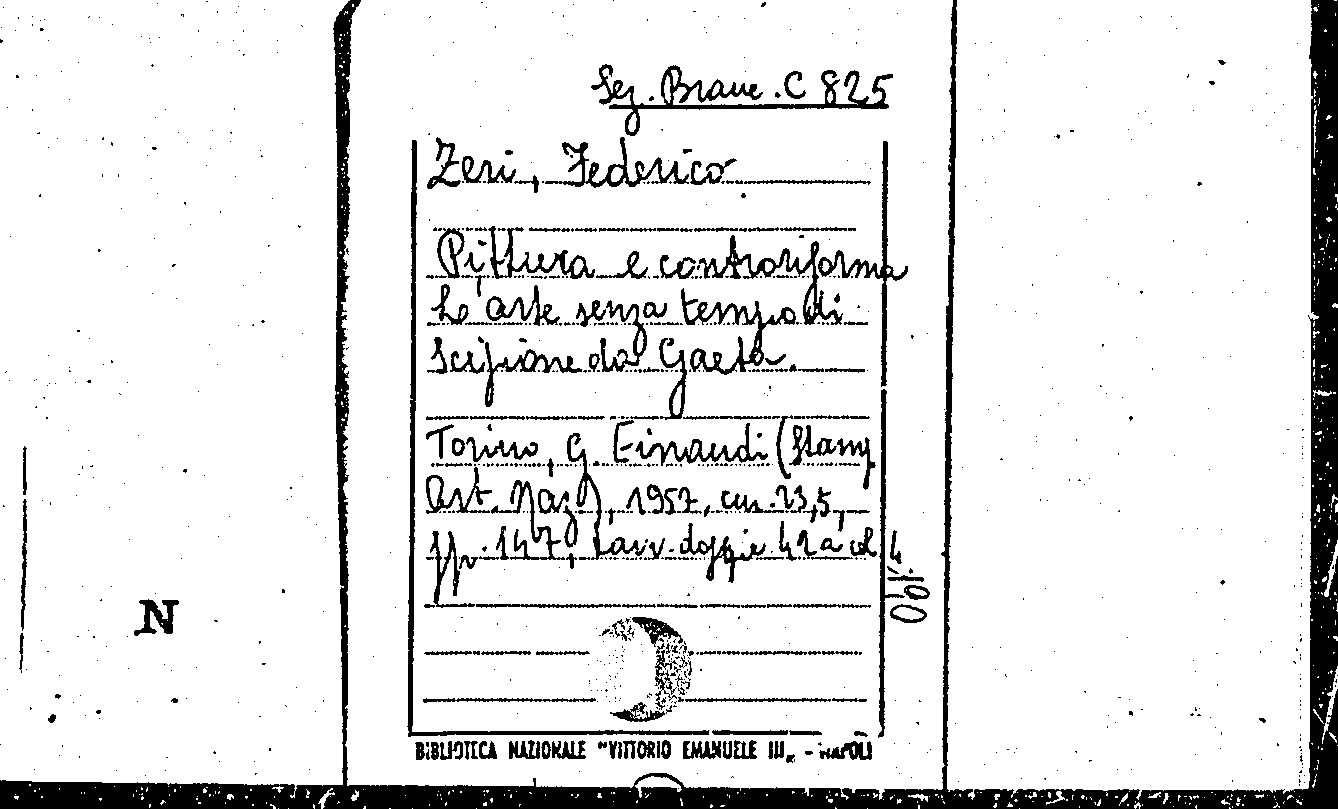 Sez. Branc. C 825
Zeri, Federico
Pittura e controriforma
Lo arte senza tempo di
Scipione da Gaeta.
Torino, G. Einaudi (Stamp
Art. Naz), 1957, cm. 23,5,
pp. 147, tavv. doppie 42 a col 4
N
BIBLIOTECA NAZIONALE "VITTORIO EMANUELE III„ - NAPOLI